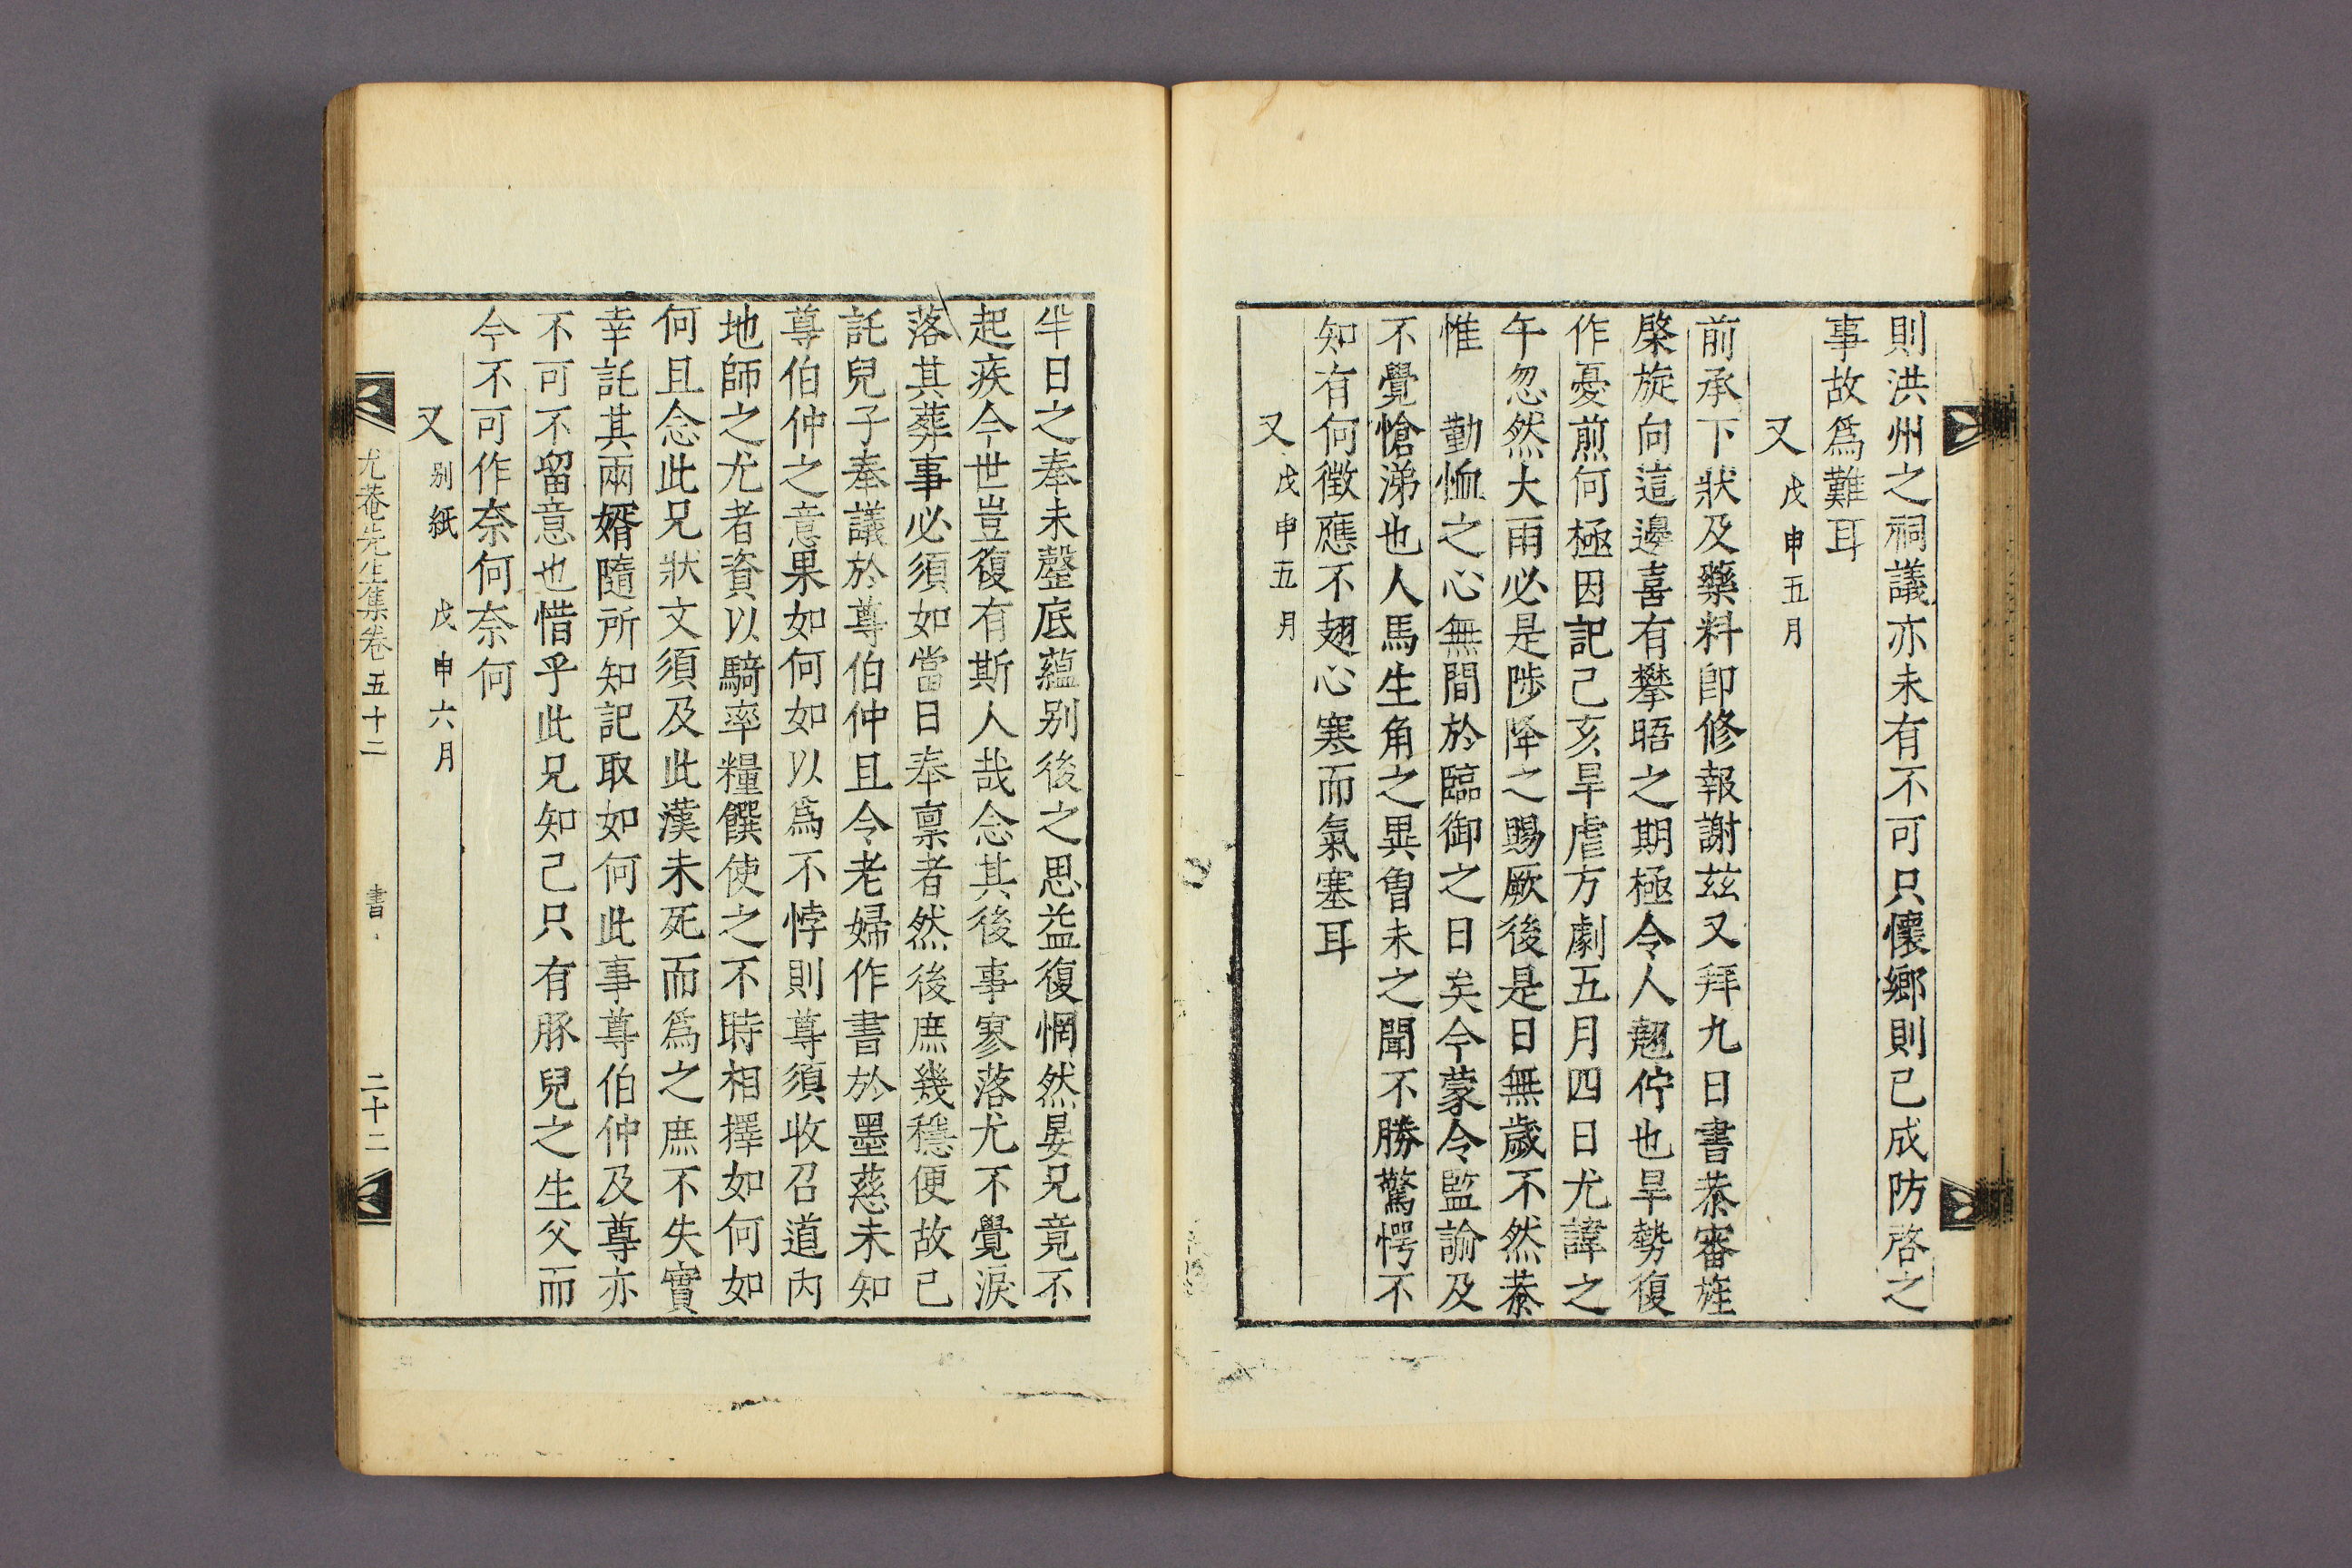 則洪州之祠議亦未有不可只懷鄉則已成防啓之
事故爲難耳
又 戊申五月
前承下狀及藥料卽修報謝玆又拜九日書恭審旌
棨旋向這邊喜有攀晤之期極令人翹佇也旱勢復
作憂煎何極因記己亥旱虐方劇五月四日尤諱之
午忽然大雨必是陟降之賜厥後是日無歲不然恭
惟 勤恤之心無間於臨御之日矣今蒙令監諭及
不覺愴涕也人馬生角之異曾未之聞不勝驚愕不
知有何徵應不翅心寒而氣塞耳
又 戊申五月
半日之奉未罄底蘊別後之思益復惘然晏兄竟不
起疾今世豈復有斯人哉念其後事寥落尤不覺淚
落其葬事必須如當日奉稟者然後庶幾穩便故已
託兒子奉議於尊伯仲且令老婦作書於墨慈未知
尊伯仲之意果如何如以爲不悖則尊須收召道內
地師之尤者資以騎率糧饌使之不時相擇如何如
何且念此兄狀文須及此漢未死而爲之庶不失實
幸託其兩婿隨所知記取如何此事尊伯仲及尊亦
不可不留意也惜乎此兄知己只有豚兒之生父而
今不可作奈何奈何
又 別紙 戊申六月
尤菴先生集卷五十二 書 二十二